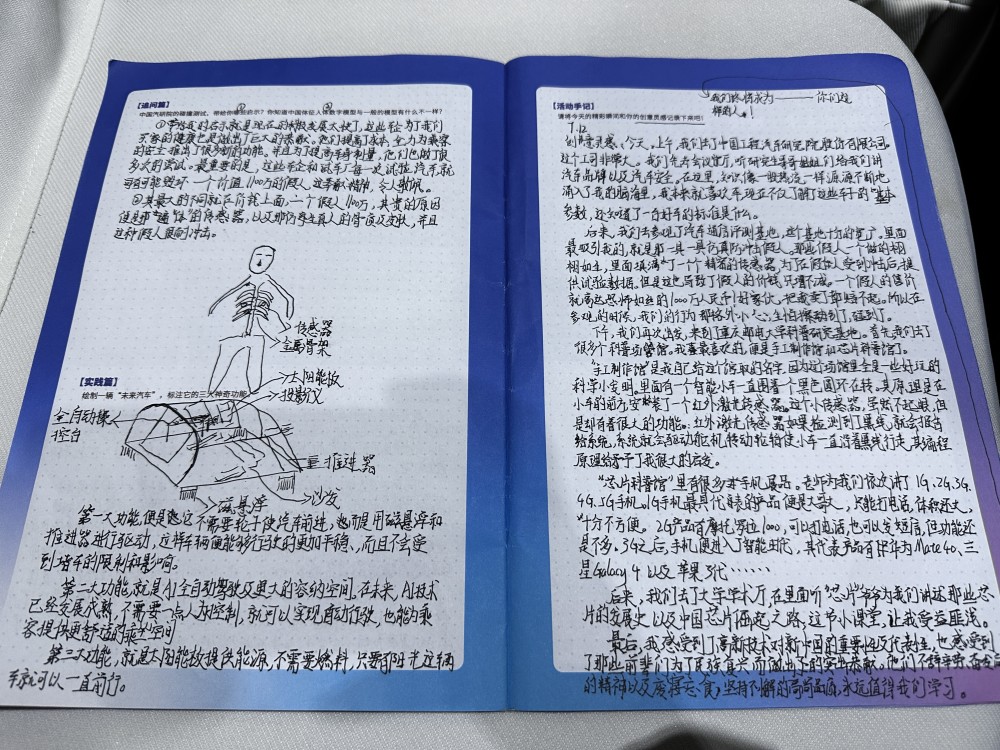 【追问篇】
中国汽研院的碰撞测试，带给你哪些启示？你知道中国体征人体数字模型与一般的模型有什么不一样？
① ②
①带给我的启示就是现在的科技发展太快了，这些车企为了我们
乘客的健康也是做出了巨大的贡献。他们提高了成本，全力为乘客
的安全推出了很多新的功能。并且为了提高车的质量，他们也做了很
多次的尝试。最重要的是，这些车企和试车厂每一次试驾汽车就
可能毁坏一个价值1100万的假人，这奉献精神，令人敬佩。
②其最大的不同就在价钱上面，一个假人1100万，其贵的原因
便是那遍“体”的传感器，以及那仿照真人的骨质及皮肤，并且
这种假人更耐冲击。
传感器
金属骨架
【实践篇】
绘制一辆“未来汽车”，标注它的三大神奇功能
太阳能板
投影仪
全自动操
控台
推进器
磁悬浮
沙发
第一大功能便是它不需要轮子使汽车前进，而是用磁悬浮和
推进器进行驱动，这样车辆便能够行驶的更加平稳，而且不会受
到堵车的限制和影响。
第二大功能，就是AI全自动驾驶及更大的容纳空间。在未来，AI技术
已经发展成熟，不需要一点人为控制，就可以实现自动行驶，也能为乘
客提供更舒适的乘坐空间
第三大功能，就是太阳能板提供能源，不需要燃料，只要有阳光这辆
车就可以一直前行。
【活动手记】
请将今天的精彩瞬间和你的创意灵感记录下来吧！
我们终将成为——你们这
样的人。！
7.12
创意灵感，今天，上午，我们去了中国工程汽车研究院股份有限公司。
这个公司非常大。我们先在会议厅，听研究生哥哥姐姐们给我们讲
汽车品牌以及汽车安全，在这里，知识像一股暖流一样源源不断地
涌入了我的脑海里，我本来就喜欢车，现在不仅了解了这些车的“基本
参数，还知道了一台好车的标准是什么。
后来，我们去参观了汽车通信评测基地，这个基地十分的宽广，里面
最吸引我的，就是那一具一具仿真防冲击假人。那些假人一个做的栩
栩如生，里面填满了一个个精密的传感器，为了在假体人受到冲击后，提
供试验数据，但是这也导致了假人的价钱，只增不减。一个假人的售价
就高达恐怖如斯的1000万人民币！好家伙，把我卖了都赔不起。所以在
参观的时候，我们的行为那格外小心，生怕撞到了，碰到了。
下午，我们再次出发，来到了重庆邮电大学科普研究基地。首先，我们去了
很多个科普场馆。我最喜欢的，便是手工制作馆和芯片科普馆了。
“手工制作馆”是我自己给这个馆取的名字，因为这个场馆里全是一些好玩的
科学小发明。里面有一个智能小车一直围着一个黑色圆不在转。其原理是在
小车的前方安装了一个红外激光传感器。这个小传感器，虽然不起眼，但
是却有着很大的功能。红外激光传感器如果检测到了黑线，就会报告
给系统，系统就会驱动舵机，转动轮椅使小车一直沿着黑线行走，其编程
原理给予了我很大的启发。
“芯片科普馆”里有很多对手机展品。老师为我们依次讲了1G，2G，3G，
4G，5G手机。1G手机最具代表的产品便是大哥大，只能打电话，体积还大，
十分不方便。2G产品有摩托罗拉1000，可以打电话也可以发短信，但功能还
是不多。3G之后，手机便进入了智能时代，其代表产品有华为Mate40、三
星Galaxy4以及苹果3代……
后来，我们去了大学学术厅，在里面听“芯片爷爷为我们讲述那些芯
片的发展史以及中国芯片崛起之路，这节小课堂，让我受益匪浅。
最后，我感受到了高新技术对新中国的重要性及代表性，也感受到
了那些前辈们为了民族复兴而做出下的突出贡献。他们不辞辛劳
的精神以及废寝忘食，坚持不懈的高尚品质，永远值得我们学习。